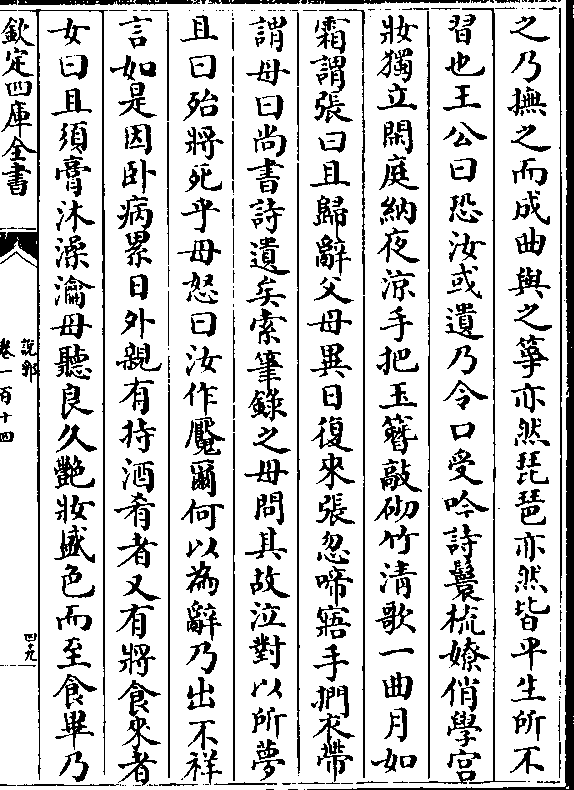 之乃撫之而成曲與之箏亦然琵琶亦然皆平生所不
習也王公曰恐汝或遺乃令口受吟詩鬟梳嫽俏學宫
妝獨立閑庭納夜涼手把玉簪敲砌竹清歌一曲月如
霜謂張曰且歸辭父母異日復來張忽啼寤手捫衣帶
謂母曰尚書詩遺矣索筆錄之母問其故泣對以所夢
且曰殆將死乎母怒曰汝作魘爾何以為辭乃出不祥
言如是因卧病累日外親有持酒肴者又有將食來者
女曰且須膏沐澡瀹母聽良久艷妝盛色而至食畢乃
欽定四庫全書
說郛
卷一百十四
四十九